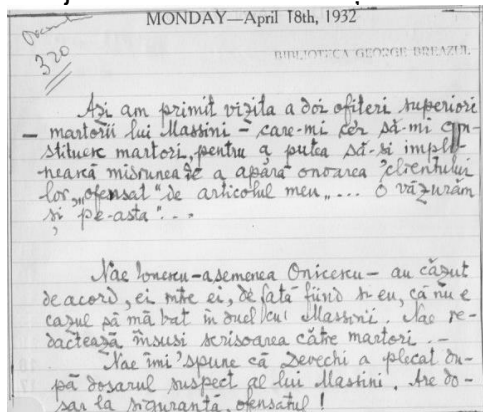 Document
320
MONDAY—April 18th, 1932
BIBLIOTECA GEORGE BREAZUL
Azi am primit vizita a doi ofiteri superiori
– martorii lui Massini – care-mi cer să-mi con-
stituesc martori, pentru a putea să-si impli-
nească misiunea de a apăra onoarea "clientului
lor, "ofensat" de articolul meu "... o văzurăm
și pe-asta"...
Nae Ionescu – asemenea Onicescu – au căzut
de acord, ei între ei, de față fiind si eu, că nu e
cazul să mă bat în duel cu Massini. Nae re-
dactează însusi scrisoarea către martori. –
Nae îmi spune că Devechi a plecat du-
pă dosarul suspect al lui Massini. Are do-
sar la siguranță, ofensatul!